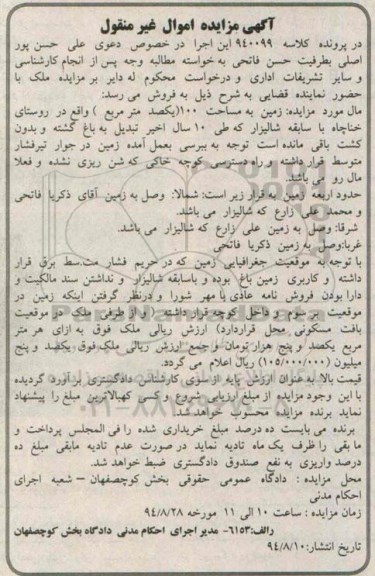 آگهی مزایده اموال غیر منقول
در پرونده کلاسه ۹۴۰۰۹۹ این اجرا در خصوص دعوی علی حسن پور
اصلی بطرفیت حسن فاتحی به خواسته مطالبه وجه پس از انجام کارشناسی
و سایر تشریفات اداری و درخواست محکوم له دایر بر مزایده ملک با
حضور نماینده قضایی به شرح ذیل به فروش می رسد:
مال مورد مزایده: زمین به مساحت ۱۰۰(یکصد متر مربع) واقع در روستای
خناچاه با سابقه شالیزار که طی ۱۰ سال اخیر تبدیل به باغ گشته و بدون
کشت باقی مانده است توجه به بررسی بعمل آمده زمین در جوار تیرفشار
متوسط قرار داشته و راه دسترسی کوچه خاکی که شن ریزی نشده و فعلا
مال رو می باشد.
حدود اربعه زمین به قرار زیر است: شمالا: وصل به زمین آقای ذکریا فاتحی
و محمد علی زارع که شالیزار می باشد.
شرقا: وصل به زمین علی زارع که شالیزار می باشد.
غربا:وصل به زمین ذکریا فاتحی
با توجه به موقعیت جغرافیایی زمین که در حریم فشار مت.سط برق قرار
داشته و کاربری زمین باغ بوده و باسابقه شالیزار و نداشتن سند مالکیت و
دارا بودن فروش نامه عادی با مهر شورا و درنظر گرفتن اینکه زمین در
موقعیت بر سوم و داخل کوچه قرار داشته (و از طرفی ملک در موقعیت
بافت مسکونی محل قراردارد) ارزش ریالی ملک فوق به ازای هر متر
مربع یکصد و پنج هزار تومان و جمع ارزش ریالی ملک فوق یکصد و پنج
میلیون (۱۰۵/۰۰۰/۰۰۰) ریال اعلام می گردد.
قیمت بالا به عنوان ارزش پایه از سوی کارشناس دادگستری بر آورد گردیده
با این وجود مزایده از مبلغ ارزیابی شروع و کسی کهبالاترین مبلغ را پیشنهاد
نماید برنده مزایده محسوب خواهد شد.
برنده می بایست ده درصد مبلغ خریداری شده را فی المجلس پرداخت و
ما بقی را ظرف یک ماه تادیه نماید در صورت عدم تادیه مابقی مبلغ ده
درصد واریزی به نفع صندوق دادگستری ضبط خواهد شد.
محل مزایده : دادگاه عمومی حقوقی بخش کوچصفهان – شعبه اجرای
احکام مدنی
زمان مزایده : ساعت ۱۰ الی ۱۱ مورخه ۹۴/۸/۲۸
رالف:۶۱۵۳- مدیر اجرای احکام مدنی دادگاه بخش کوچصفهان
تاریخ انتشار:۹۴/۸/۱۰